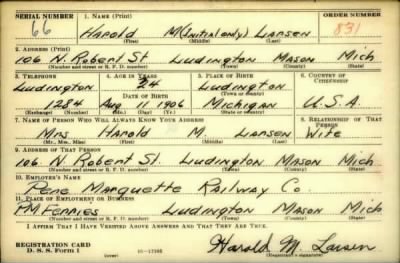 SERIAL NUMBER 1. NAME (Print) ORDER NUMBER
66 Harold M(initial only) Larsen 831
(First) (Middle) (Last)
2. ADDRESS (Print)
106 N. Robert St Ludington Mason Mich
(Number and street or R. F. D. number) (Town) (County) (State)
3. TELEPHONE 4. AGE IN YEARS 5. PLACE OF BIRTH 6. COUNTRY OF CITIZENSHIP
Ludington 34 Ludington
DATE OF BIRTH (Town or county)
1284 Aug 11 1906 Michigan U.S.A.
(Exchange) (Number) (Mo.) (Day) (Yr.) (State or country)
7. NAME OF PERSON WHO WILL ALWAYS KNOW YOUR ADDRESS 8. RELATIONSHIP OF THAT PERSON
Mrs Harold M. Larsen Wife
(Mr., Mrs., Miss) (First) (Middle) (Last)
9. ADDRESS OF THAT PERSON
106 N Robert St. Ludington Mason Mich
(Number and street or R. F. D. number) (Town) (County) (State)
10. EMPLOYER'S NAME
Pere Marquette Railway Co.
11. PLACE OF EMPLOYMENT OR BUSINESS
P.M. Ferries Ludington Mason Mich
(Number and street or R. F. D. number) (Town) (County) (State)
I AFFIRM THAT I HAVE VERIFIED ABOVE ANSWERS AND THAT THEY ARE TRUE.
REGISTRATION CARD
D. S. S. Form 1 (over) 16-17105 Harold M. Larsen
(Registrant's signature)